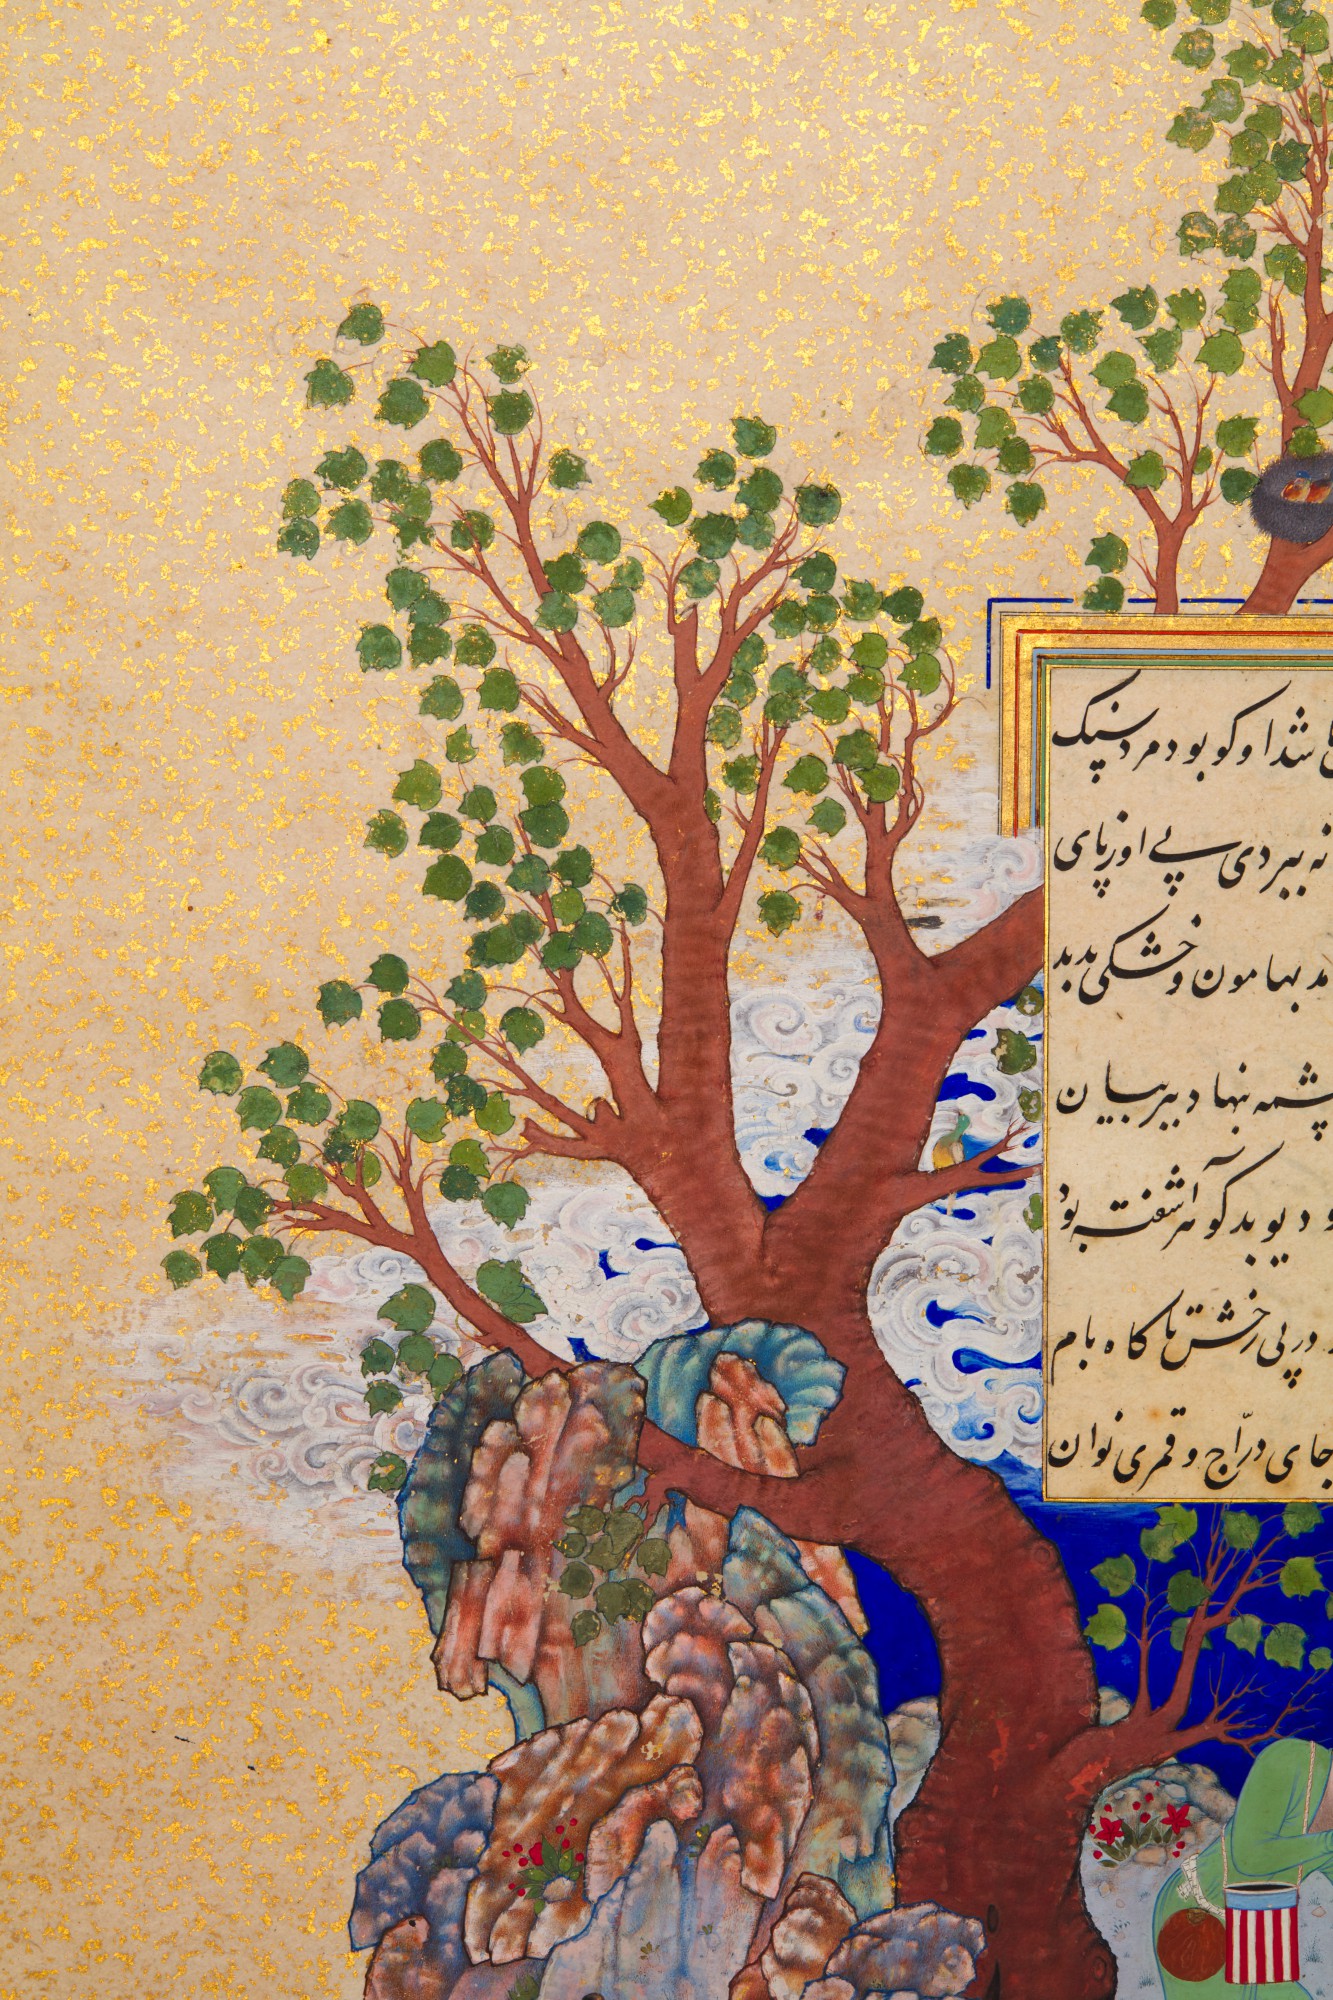 شد او کو بود مرد سنک
نه ببردی پی او ز پای
مد بهامون و خشکی بدید
چشمه نهاد ببر بیان
و دیو بد کوهر آشفته بود
در پی رخش تا کاه بام
جای درّاج و قمری نوان